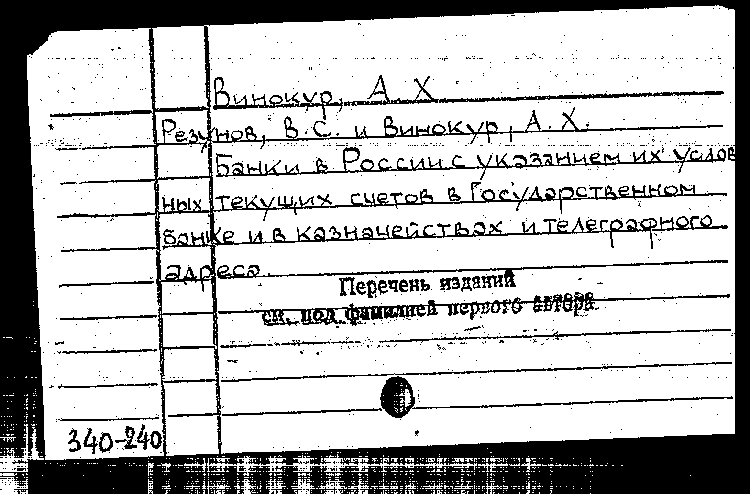 Винокур, А. Х
Резунов, В.С. и Винокур, А.Х.
Банки в России с указанием их услов
ных текущих счетов в Государственном
банке и в казначействах и телеграфного
адреса.
Перечень изданий
см. под фамилией первого автора
340-240